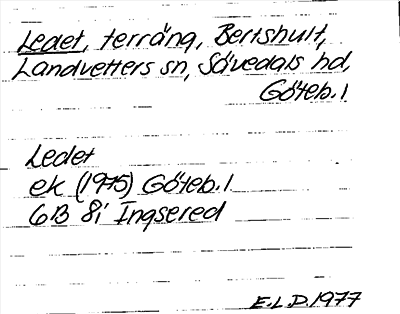 Ledet, terräng, Bertshult,
Landvetters sn, Sävedals hd,
Göteb. l
Ledet
ek (1975) Göteb. l
6B 8i Ingsered
E.L.D. 1977